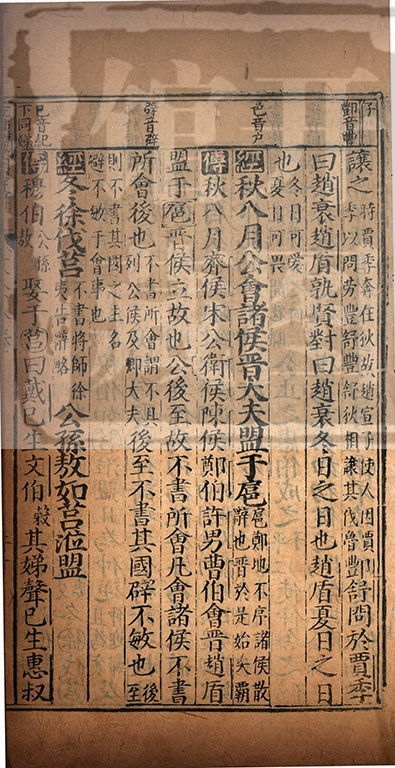 酆音豐
讓之時賈季奔在狄故趙宣子使人因賈季以問勞酆舒酆舒狄相讓其伐魯酆舒問於賈季
曰趙衰趙盾孰賢對曰趙衰冬日之日也趙盾夏日之日
也冬日可愛夏日可畏
扈音户
經秋八月公會諸侯晉大夫盟于扈扈鄭地不序諸侯散辭也晉於是始失霸
傳秋八月齊侯宋公衛侯陳侯鄭伯許男曹伯會晉趙盾
盟于扈晉侯立故也公後至故不書所會凡會諸侯不書
辟音避
所會後也不書所會謂不具列公侯及卿大夫後至不書其國辟不敏也後至
則不書其國之主名辟不敏于會事也
經冬徐伐莒不書將帥徐夷告辭略公孫敖如莒涖盟
己音紀下同
傳穆伯公孫敖娶于莒曰戴己生文伯穀其娣聲己生惠叔